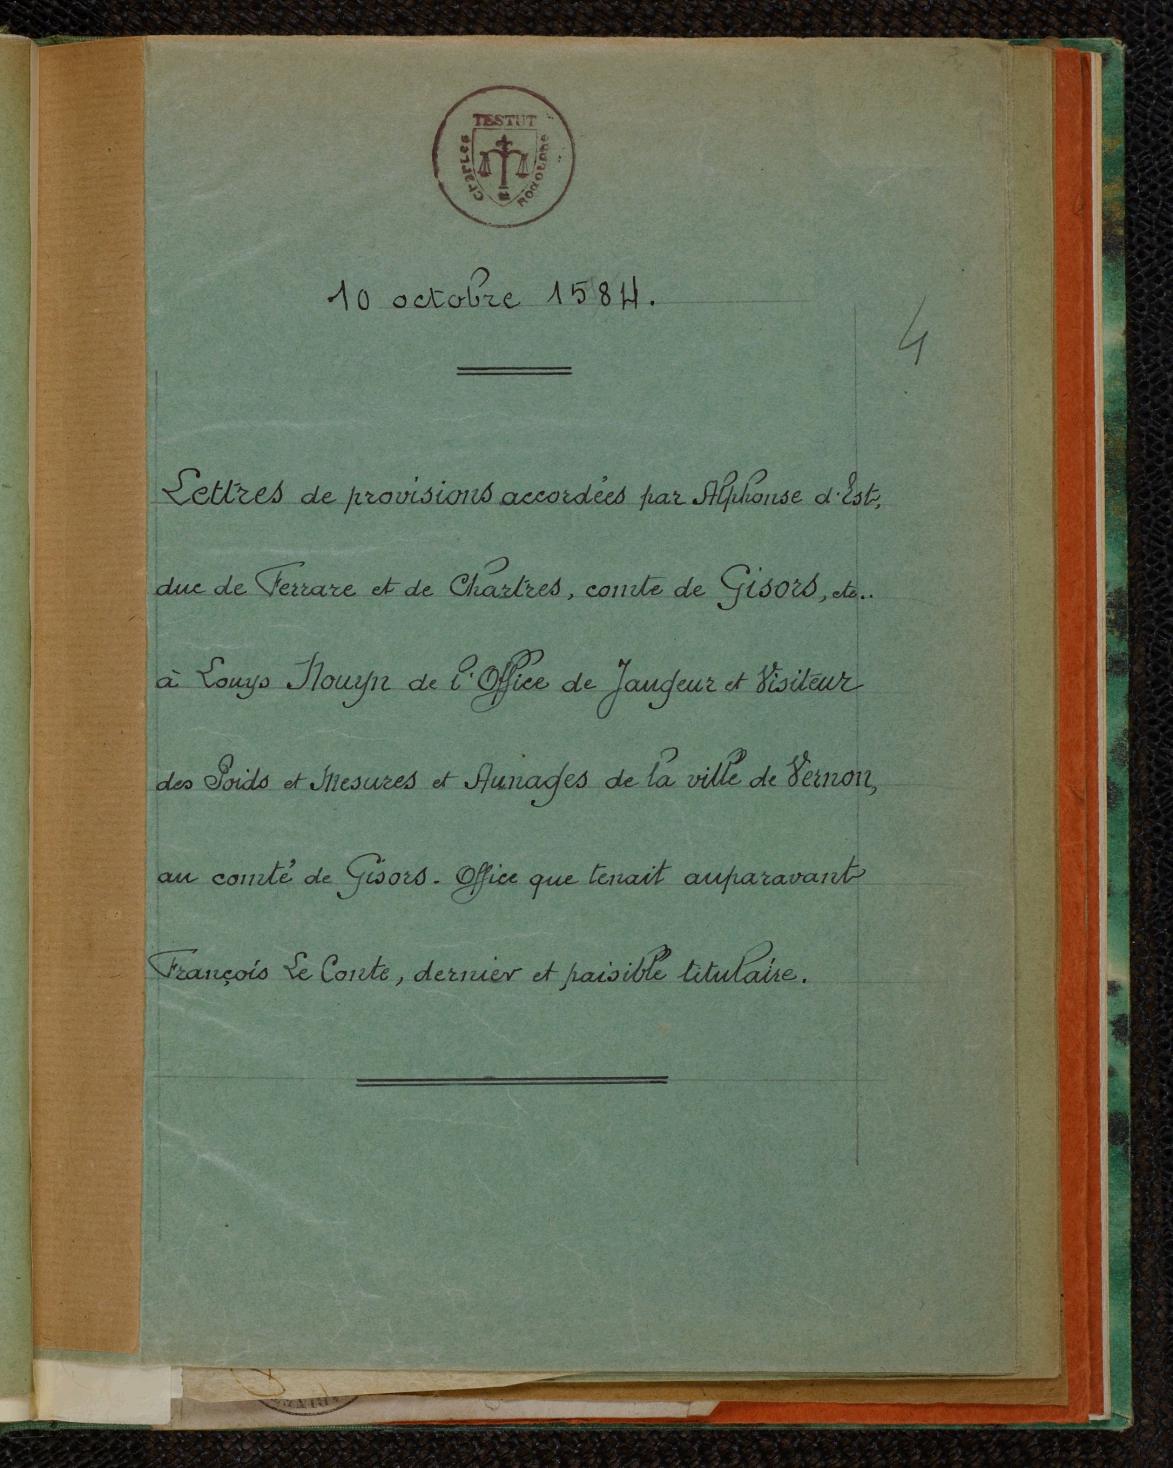 TESTUT
CHARLES
RODOLPHE
10 octobre 1584.
4
Lettres de provisions accordées par Alphonse d'Est,
duc de Ferrare et de Chartres, comte de Gisors, etc..
à Louys Nouyn de l'Office de Jaugeur et Visiteur
des Poids et Mesures et Aunages de la ville de Vernon,
au comté de Gisors. Office que tenait auparavant
François Le Conte, dernier et paisible titulaire.